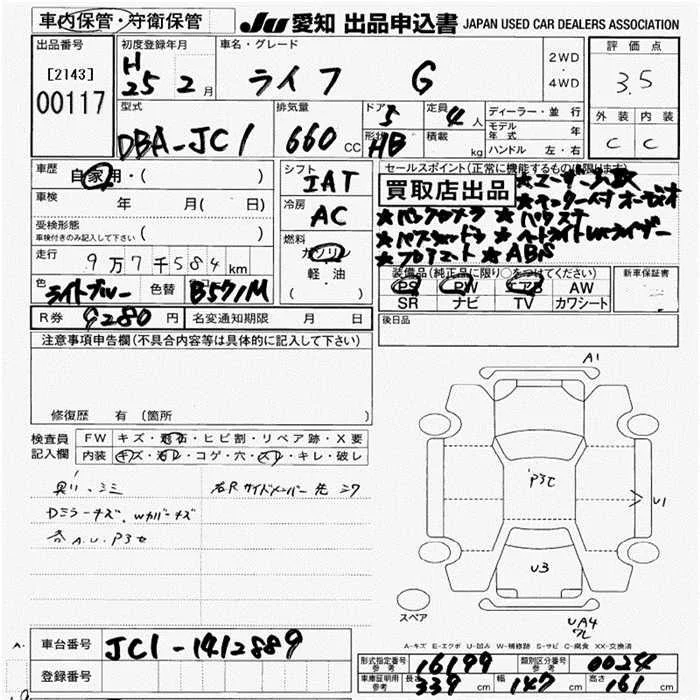 車内保管・守衛保管
JU 愛知 出品申込書 JAPAN USED CAR DEALERS ASSOCIATION
出品番号
[2143]
00117
初度登録年月
H 25 2月
車名・グレード
ライフ G
2WD
・
4WD
評価点
3.5
外装 内装
C C
型式
DBA-JC1
排気量
660 cc
ドア 5
形状 HB
定員 4人
積載 kg
ディーラー・並行
モデル年式 年
ハンドル 左・右
車歴
自家用・( )
車検 年 月( 日)
受検形態
車検付きのみ記入して下さい ( )
走行 9万7千584km
色 ライトブルー 色替 B571M
R券 9280円 名変通知期限 月 日
シフト
IAT
冷房
AC
燃料
ガソリン
軽・油
( )
セールスポイント(正常に機能するものに限ります)
買取店出品
★ユーザー買取
★モニター付オーディオ
★バックカメラ ★
★ ★
★ ★ABS
装備品(純正品に限り○をつけてください)
PS PW エアB AW
SR ナビ TV カワシート
新車保証書
後日品
注意事項申告欄(不具合内容等は具体的に記入して下さい)
修復歴 有 (箇所 )
検査員記入欄
FW キズ・飛石・ヒビ割・リペア跡・X要
内装 キズ・汚レ・コゲ・穴・スレ・キレ・破レ
右Rサイドメンバー先 ミワ
Dミラーキズ、Wカバーキズ
各A.U.P3c
A1
P3c
U1
U3
UA4
ワレ
スペア
A-キズ E-エクボ U-凹み W-補修跡 S-サビ C-腐食 XX-交換済
車台番号 JC1-1412889
登録番号
形式指定番号 参考 16199
類別区分番号 参考 0024
車庫証明用 参考 長さ 339cm 幅 147cm 高さ 161cm